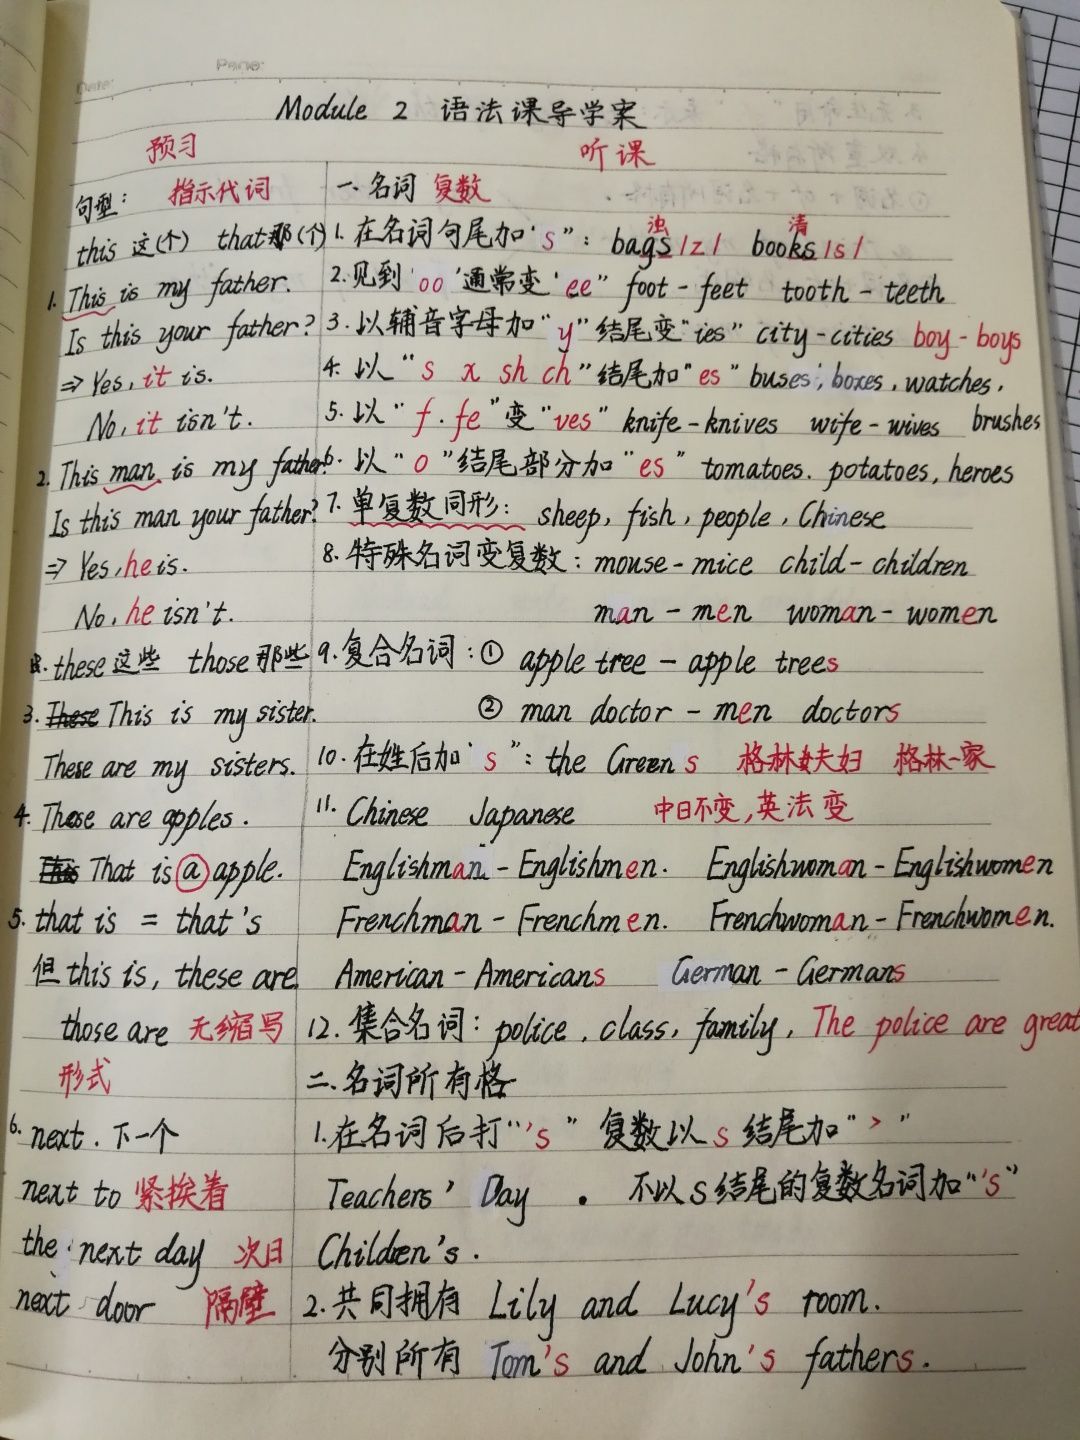 Date:
Page:
Module 2 语法课导学案
预习
句型： 指示代词
this 这(个) that那(个)
1. This is my father.
Is this your father?
⇒ Yes, it is.
No, it isn't.
2. This man is my father.
Is this man your father?
⇒ Yes, he is.
No, he isn't.
these 这些 those 那些
3. These This is my sister.
These are my sisters.
4. These are apples.
That is a apple.
5. that is = that's
但 this is, these are
those are 无缩写
形式
6. next. 下一个
next to 紧挨着
the next day 次日
next door 隔壁
听课
一、名词 复数
浊 清
1. 在名词句尾加‘s”：bags /z/ books /s/
2. 见到‘oo’通常变‘ee” foot - feet tooth - teeth
3. 以辅音字母加“y”结尾变“ies” city - cities boy - boys
4. 以“s x sh ch”结尾加“es” buses, boxes, watches,
brushes
5. 以“f. fe”变“ves” knife - knives wife - wives
6. 以“o”结尾部分加“es” tomatoes. potatoes, heroes
7. 单复数同形：sheep, fish, people, Chinese
8. 特殊名词变复数：mouse - mice child - children
man - men woman - women
9. 复合名词：① apple tree - apple trees
② man doctor - men doctors
10. 在姓后加‘s”：the Greens 格林夫妇 格林一家
11. Chinese Japanese 中日不变,英法变
Englishman - Englishmen. Englishwoman - Englishwomen
Frenchman - Frenchmen. Frenchwoman - Frenchwomen.
American - Americans German - Germans
12. 集合名词：police, class, family, The police are great
二、名词所有格
1. 在名词后打“'s” 复数以s结尾加“'”
Teachers' Day . 不以s结尾的复数名词加“'s”
Children's.
2. 共同拥有 Lily and Lucy's room.
分别所有 Tom's and John's fathers.